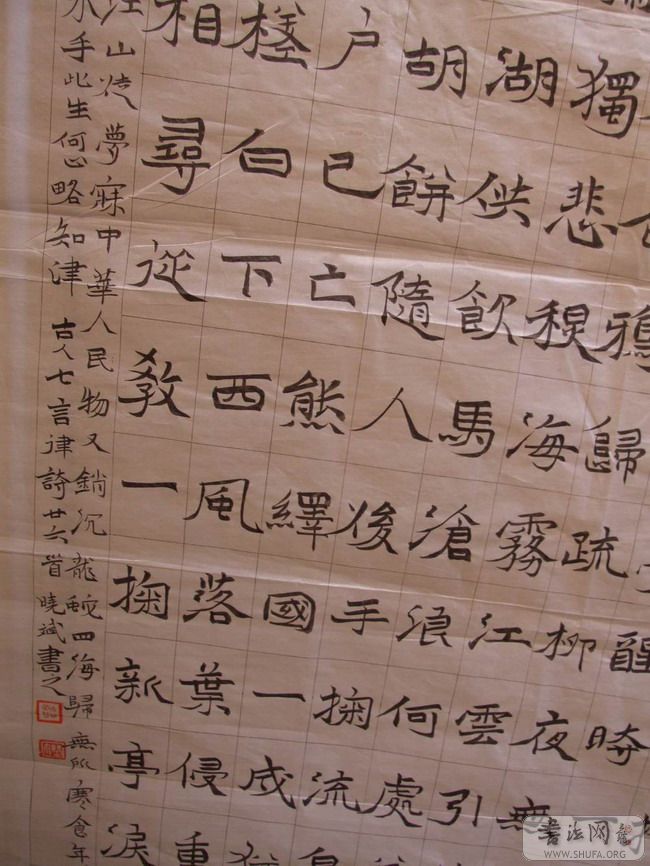 醒時
鴉歸疏柳夜無
獨悲稷海霧江雲引
湖供飲馬滄浪何處
胡餅隨人後手掬流息
戶已亡熊繹國一成猶
白下西風落葉侵重
相尋從教一掬新亭淚
江山徒夢寐中華人民物又銷沉龍蛇四海歸無所寒食年
水手此生何心略知津 古人七言律詩廿六首 曉斌書之
書法网
WWW.SHUFA.ORG